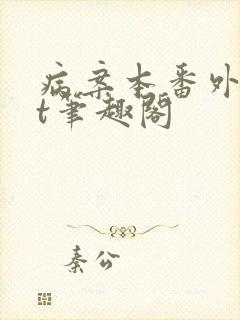 病案本番外
t笔趣阁
秦公